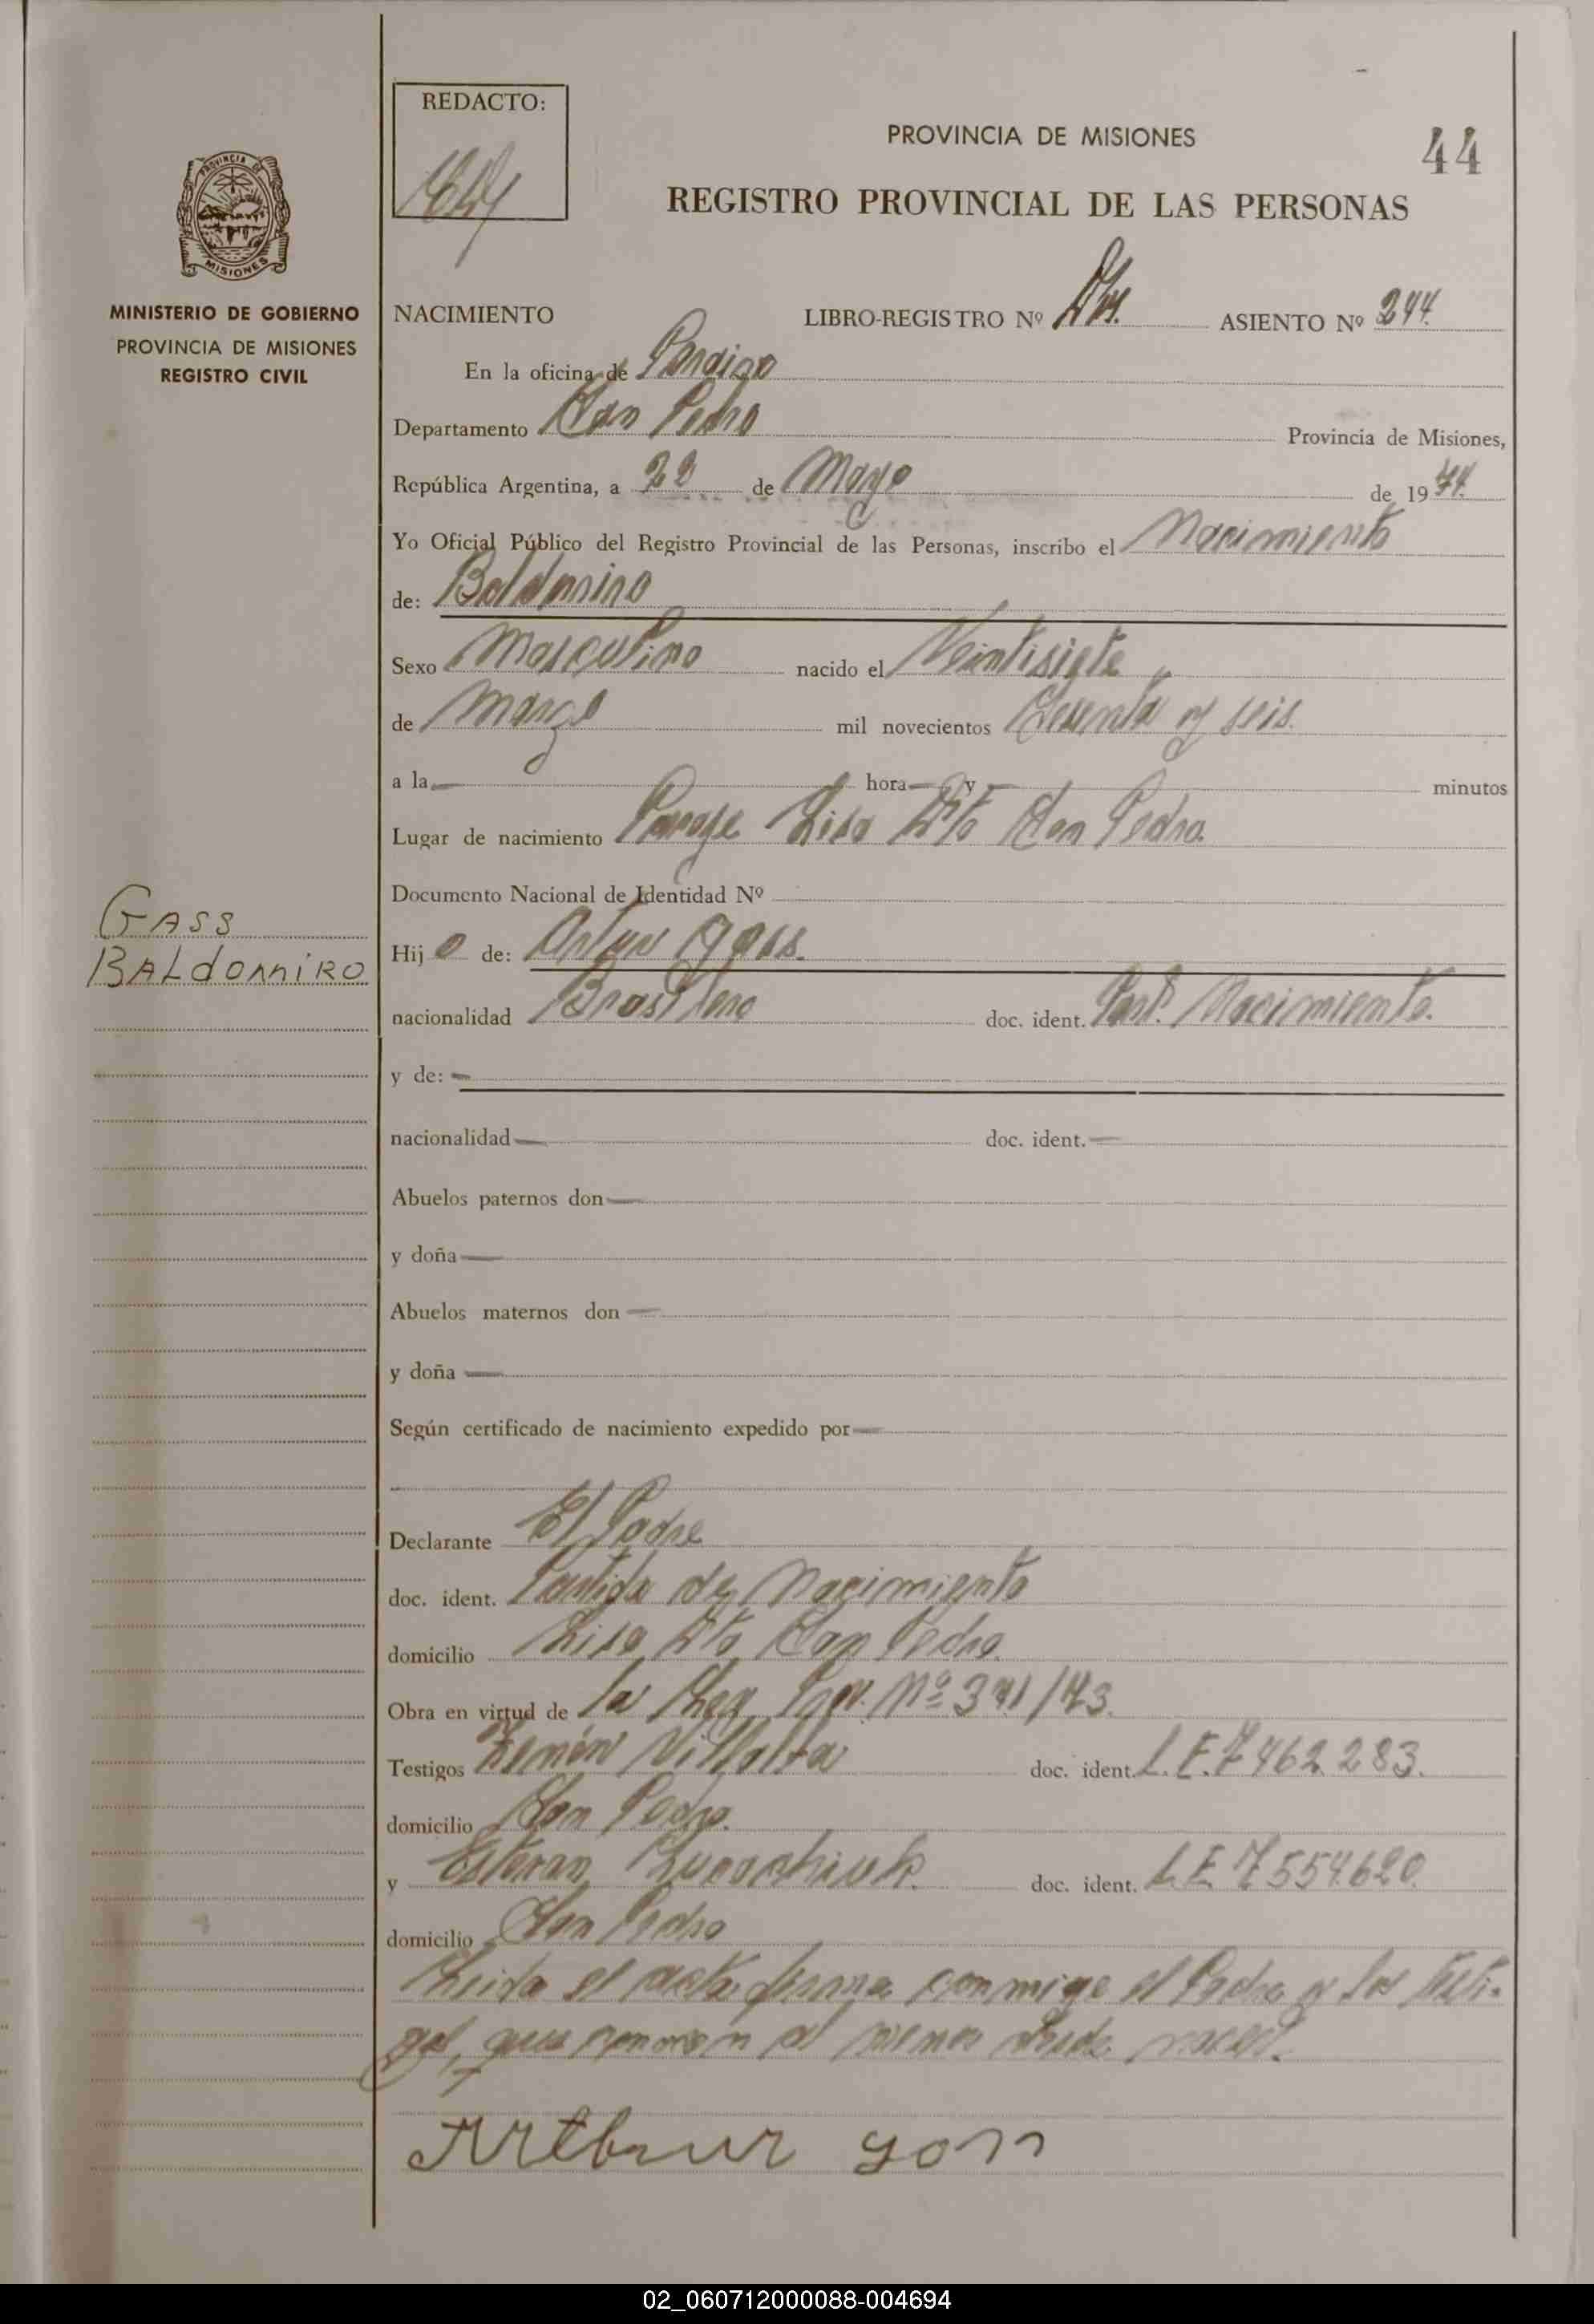 REDACTO:
PROVINCIA DE MISIONES
44
REGISTRO PROVINCIAL DE LAS PERSONAS
PROVINCIA DE
MISIONES
MINISTERIO DE GOBIERNO
PROVINCIA DE MISIONES
REGISTRO CIVIL
NACIMIENTO LIBRO-REGISTRO Nº ASIENTO Nº 244
En la oficina de
Departamento San Pedro Provincia de Misiones,
República Argentina, a 22 de Mayo de 1974
Yo Oficial Público del Registro Provincial de las Personas, inscribo el Nacimiento
de: Baldomiro
Sexo Masculino nacido el Veintisiete
de marzo mil novecientos Sesenta y seis.
a la — hora — y — minutos
Lugar de nacimiento Paraje Liso Dto San Pedro.
Documento Nacional de Identidad Nº
GASS
BALdOMIRO
Hijo de: Artur Gass.
nacionalidad Brasilero doc. ident. Part. Nacimiento.
y de: —
nacionalidad — doc. ident. —
Abuelos paternos don —
y doña —
Abuelos maternos don —
y doña —
Según certificado de nacimiento expedido por —
Declarante El Padre
doc. ident. Partida de Nacimiento
domicilio Liso Dto San Pedro.
Obra en virtud de la Ley Prov. Nº 371/73.
Testigos Villalba doc. ident. L.E. 7462.283.
domicilio San Pedro.
y doc. ident. L.E. 7554.620.
domicilio San Pedro
Leída el acta firma conmigo el Padre y los testi-
gos, que conocen al menor desde nacer.
Arthur gass
02_060712000088-004694